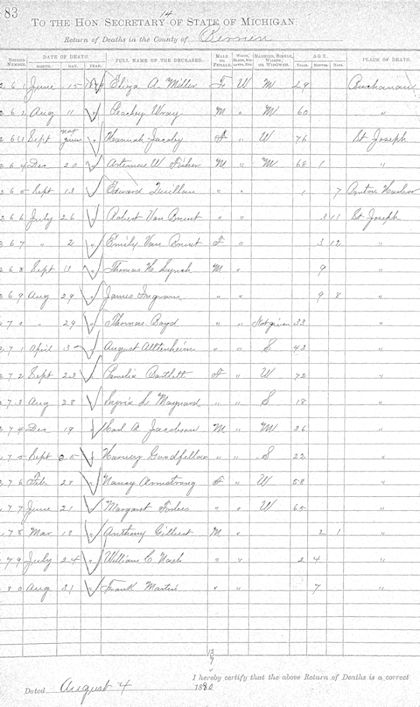 83
14
TO THE HON. SECRETARY OF STATE OF MICHIGAN
Return of Deaths in the County of Berrien
RECORD NUMBER. DATE OF DEATH. MONTH. DAY. YEAR. FULL NAME OF THE DECEASED. MALE OR FEMALE. MARRIED, SINGLE, WIDOW, OR WIDOWER. AGE. YEARS MONTHS DAYS PLACE OF DEATH.
261 June 15 Eliza A. Miller F W M 29 Buchanan
262 Aug 11 Wray M " M 60 "
263 Sept not given Hannah Jacoby F " W 76 St Joseph
264 Dec 20 Artemus W Fisher M M 1 "
265 Sept 13 Edward " " 1 7 Benton Harbor
266 July 26 Robert Van Brunt " " 3 11 St Joseph
267 " 2 " Emily Van Brunt F " 3 12
268 Sept 13 " Thomas H Lynch M " 9 "
269 Aug 29 " James Ingram " " 9 8 "
270 " 29 " Thomas Boyd " " Not given 33 "
271 April " August " " S 43 "
272 Sept 23 " Pamelia Bartlett F " W 72 "
273 Aug 28 " L. Maynard " " S 18 "
274 Dec 19 " Carl A Jacobson M " M 26 "
275 Sept 25 " Harvey Goodfellow " " S 22 "
276 Feb 28 " Nancy Armstrong F " W 58 "
277 June 21 " Margaret Forbes " " W "
278 Mar 18 " Anthony Gilbert M " 2 1 "
279 July 24 " William C Nash " " 2 4 "
280 Aug 31 " Frank Martin " " 7 "
I hereby certify that the above Return of Deaths is a correct
Dated August 4 188